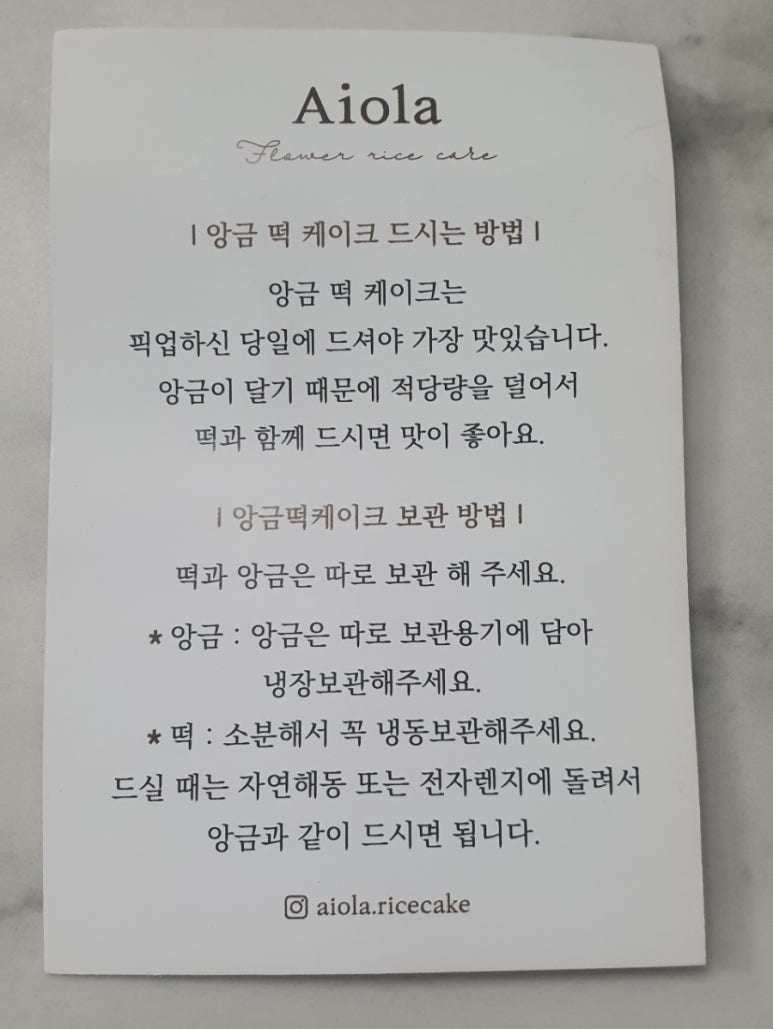 Aiola
Flower rice care
| 앙금 떡 케이크 드시는 방법 |
앙금 떡 케이크는
픽업하신 당일에 드셔야 가장 맛있습니다.
앙금이 달기 때문에 적당량을 덜어서
떡과 함께 드시면 맛이 좋아요.
| 앙금떡케이크 보관 방법 |
떡과 앙금은 따로 보관 해 주세요.
* 앙금 : 앙금은 따로 보관용기에 담아
냉장보관해주세요.
* 떡 : 소분해서 꼭 냉동보관해주세요.
드실 때는 자연해동 또는 전자렌지에 돌려서
앙금과 같이 드시면 됩니다.
aiola.ricecake